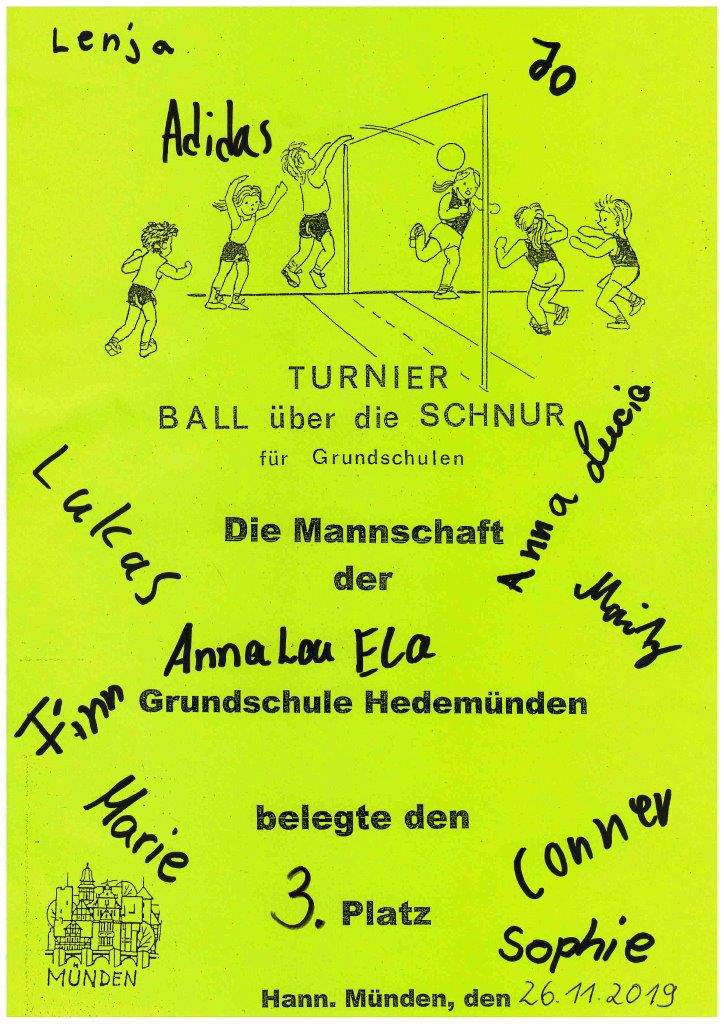 Lenja
Jo
Adidas
TURNIER
BALL über die SCHNUR
für Grundschulen
Lukas
Anna Lucia
Die Mannschaft
der
Moritz
AnnaLou Ela
Grundschule Hedemünden
Finn
Marie
belegte den
Conner
3. Platz
Sophie
MÜNDEN
Hann. Münden, den 26.11.2019